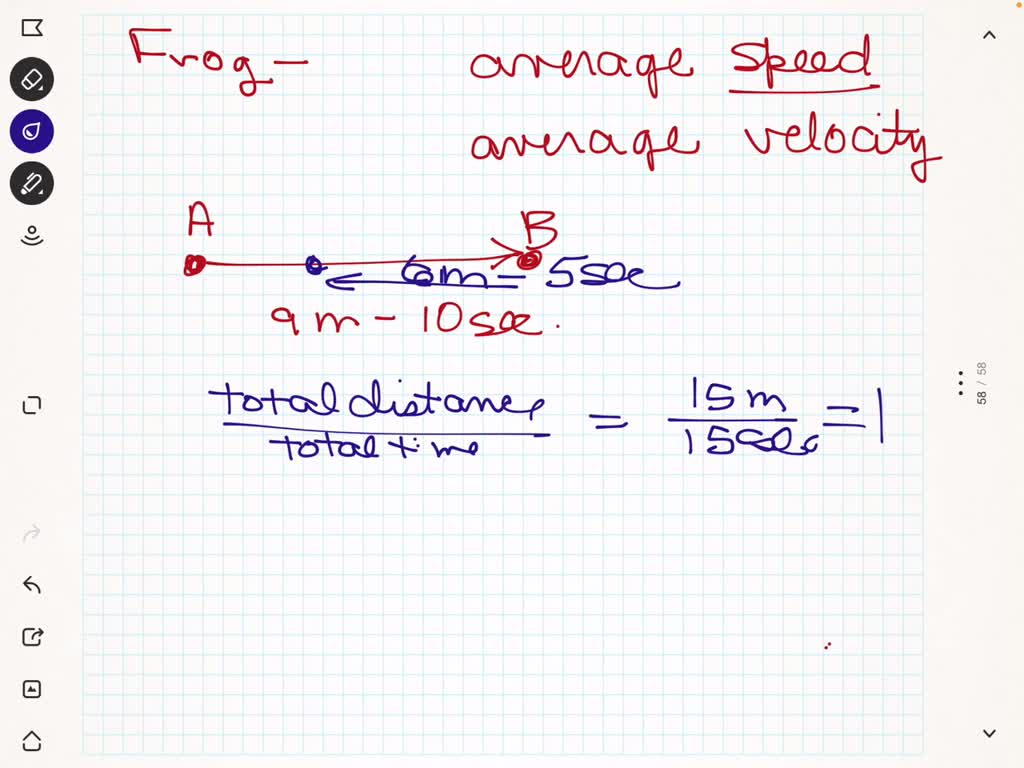 Frog - average speed
average velocity
A B
6m = 5sec
9m - 10sec.
total distance / total time = 15m / 15sec = 1
58 / 58